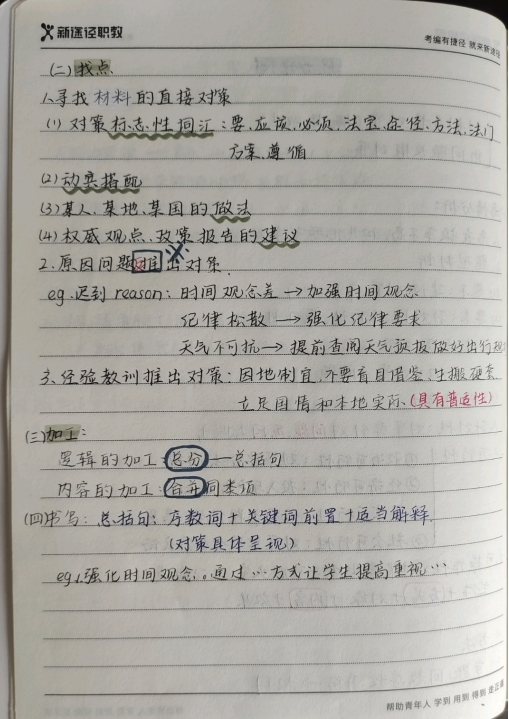 新途径职教
考编有捷径 就来新途径
(二)找点
1、寻找材料的直接对策
(1)对策标志性词汇:要、应该、必须、法宝、途径、方法、法门
方案、遵循
(2)动宾搭配
(3)某人、某地、某国的做法
(4)权威观点、政策报告的建议
2、原因问题推出对策
eg.迟到 reason:时间观念差→加强时间观念
纪律松散→强化纪律要求
天气不可抗→提前查阅天气预报做好出行规
3、经验教训推出对策:因地制宜,不要盲目借鉴、生搬硬套
立足国情和本地实际(具有普适性)
(三)加工:
逻辑的加工:总分—总括句
内容的加工:合并同类项
(四)书写:总括句:方数词+关键词前置+适当解释
(对策具体呈现)
eg.强化时间观念。通过…方式让学生提高重视…
帮助青年人 学到 用到 得到